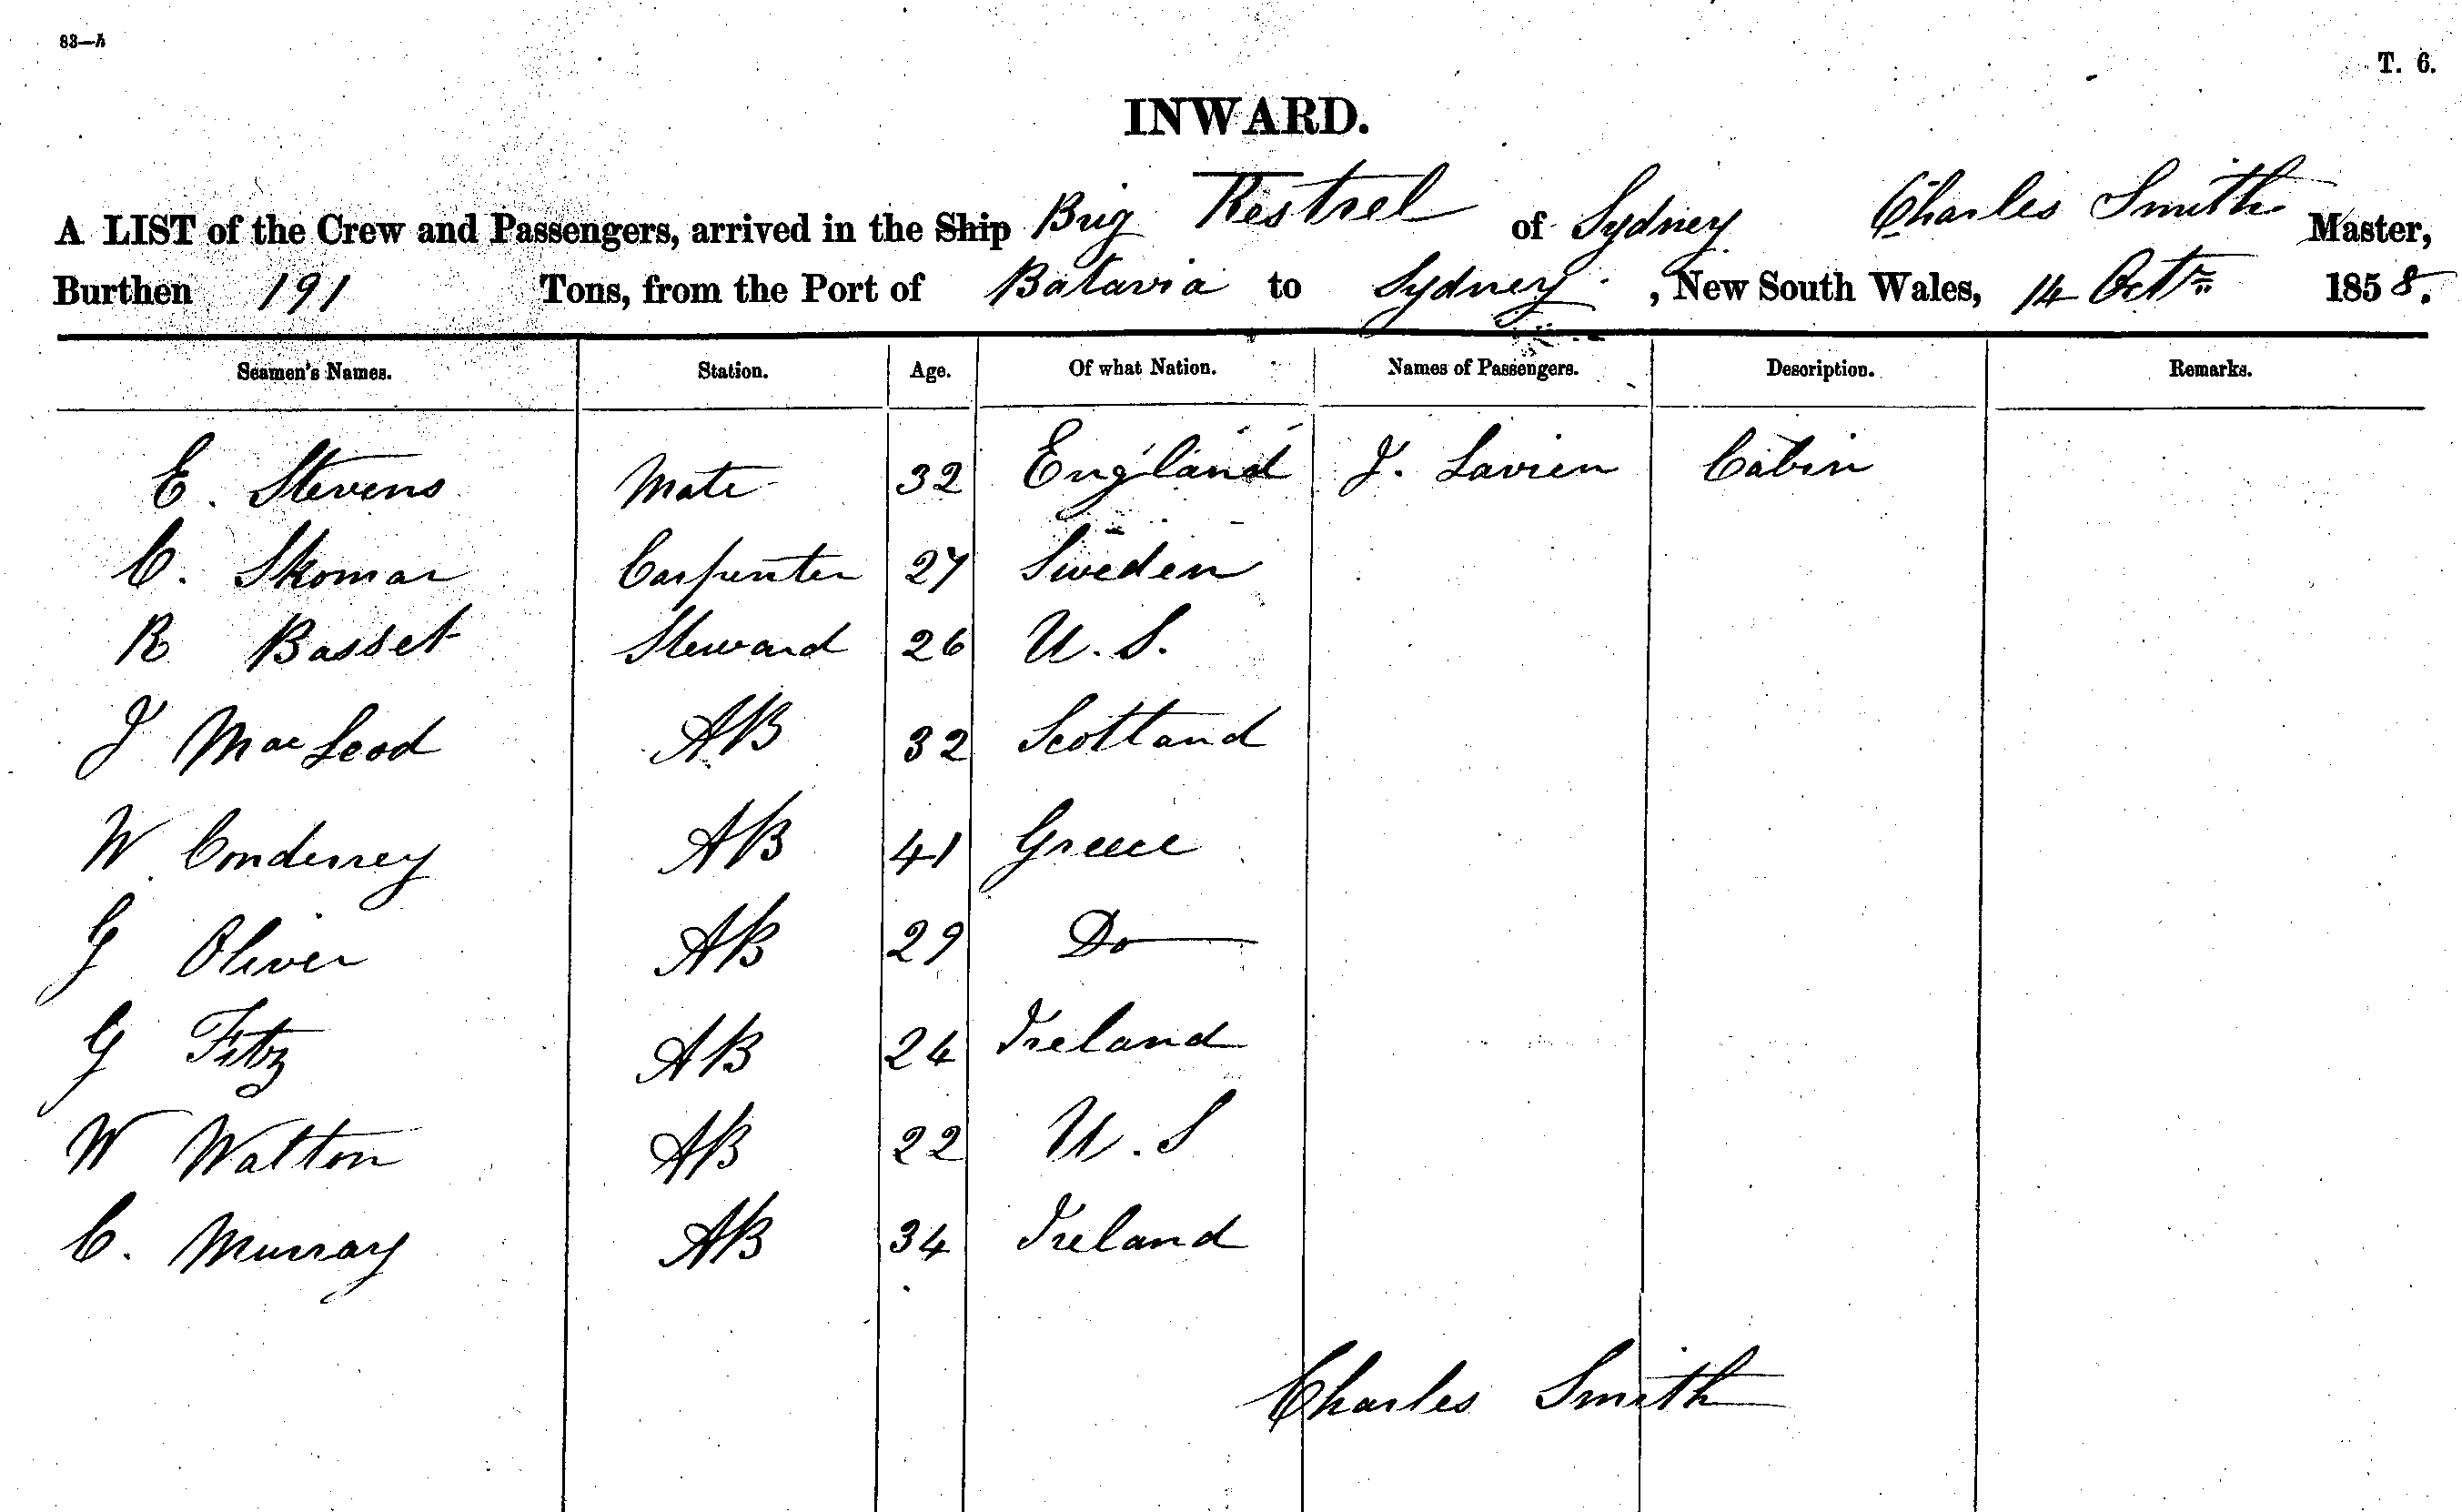 83—h
T. 6.
INWARD.
A LIST of the Crew and Passengers, arrived in the Ship Brig Kestrel of Sydney Charles Smith Master,
Burthen 191 Tons, from the Port of Batavia to Sydney, New South Wales, 14 Octr 1858.
Seamen's Names. Station. Age. Of what Nation. Names of Passengers. Description. Remarks.
E. Stevens Mate 32 England J. Lavien Cabin
C. Skomar Carpenter 27 Sweden
R Basset Steward 26 U. S.
J MacLeod AB 32 Scotland
W Conderrey AB 41 Greece
G Oliver AB 29 Do
G Fitz AB 24 Ireland
W Walton AB 22 U. S
C. Murray AB 34 Ireland
Charles Smith